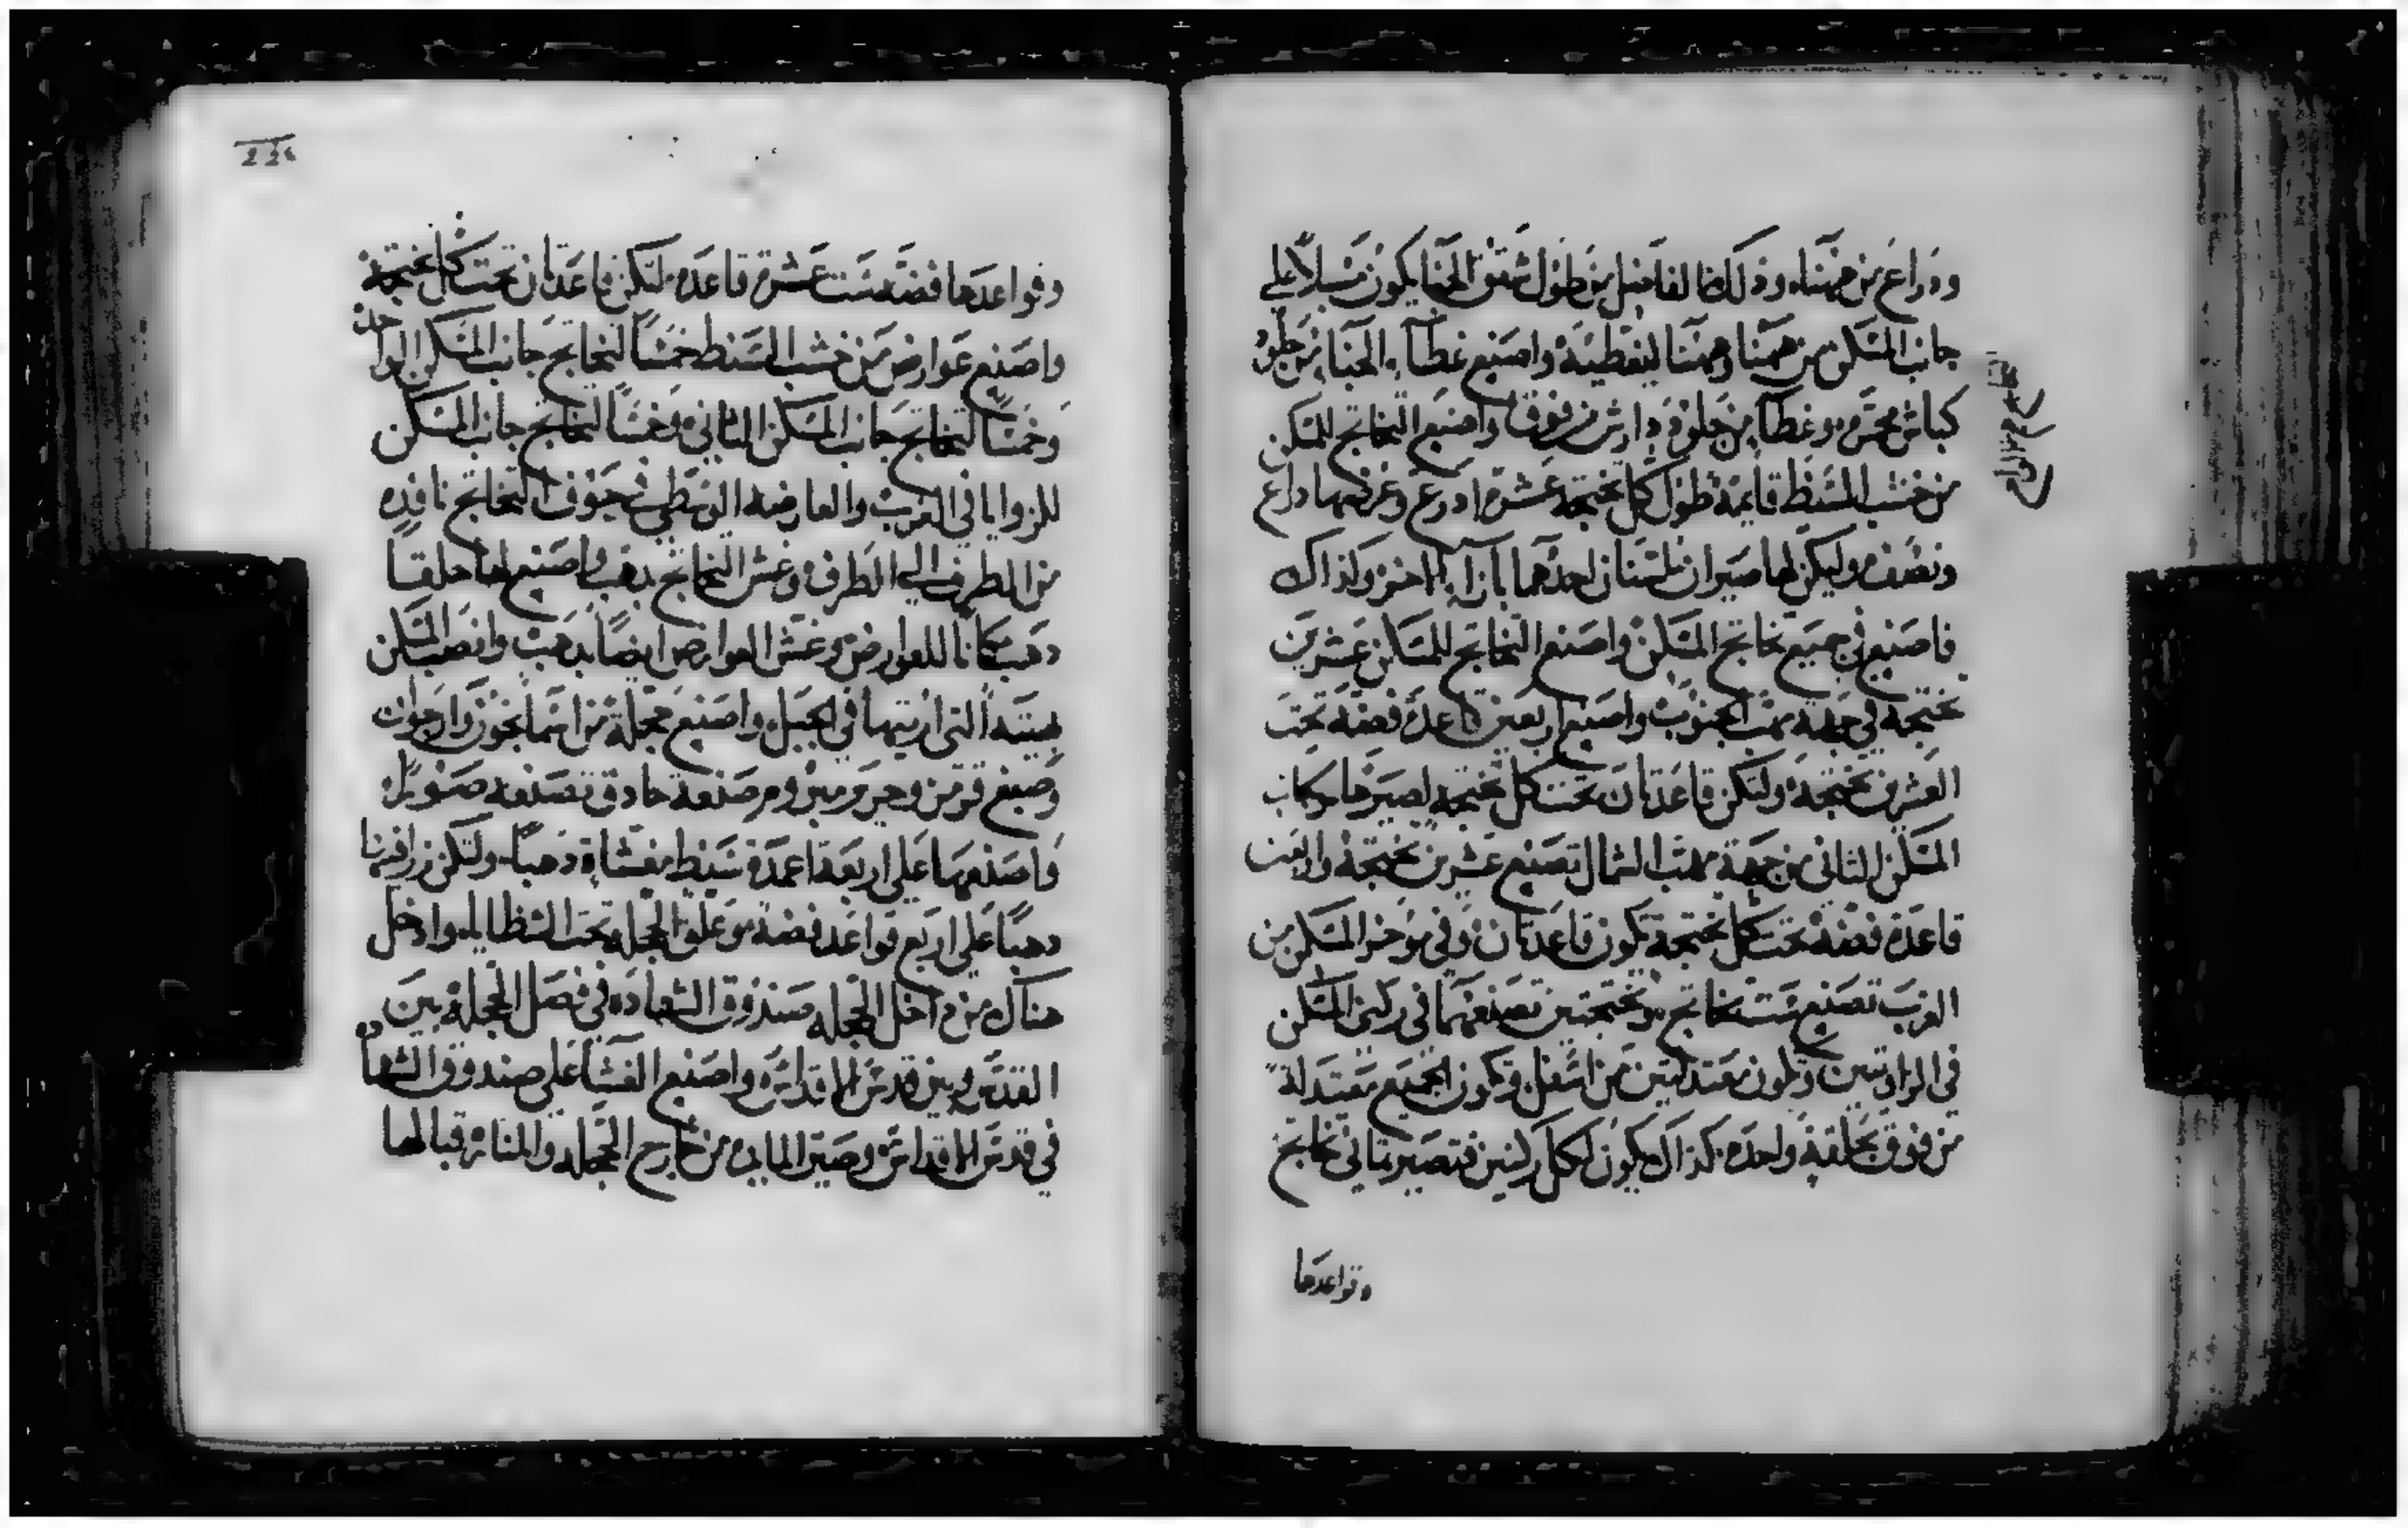 وذراع من ههنا وذلك الفاضل من طول شقق الخبا يكون مسبلاً على
جانب المسكن من ههنا وههنا ليغطيه واصنع غطاء الخبا من جلود
كباش محمره وغطا من جلود دارش من فوق واصنع التخاتج للمسكن
من خشب السنط قايمة طول كل تختجه عشرة ادرع وعرضها دراع
ونصف وليكن لها صيران احدهما بازاء الاخر ولذاك
فاصنع في جميع تخاتج المسكن واصنع التخاتج للمسكن عشرين
تختجة في جهة مهب الجنوب واصنع اربعين قاعدة فضة تحت
العشرين تختجة ولتكن قاعدتان تحت كل تختجه لصيرها وكاب
المسكن الثاني من جهة مهب الشمال تصنع عشرين تختجة واربعين
قاعدة فضة تحت كل تختجة تكون قاعدتان وفي موخر المسكن من
الغرب تصنع ست تخاتج وتختجتين تصنعهما في ركني المسكن
في الزاويتين وتكون معتدلتين من اسفل وتكون الجميع معتدلة
من فوق بحلقة واحده كذاك يكون لكل ركنين فتصير ثماني تخاتج
وقواعدها
وقواعدها فضة ست عشرة قاعدة لتكن قاعدتان تحت كل تختجة
واصنع عوارض من خشب السنط خمساً لتخاتج جانب المسكن الواحد
وخمساً لتخاتج جانب المسكن الثاني وخمساً لتخاتج جانب المسكن
للزوايا في الغرب والعارضه الوسطى في جوف التخاتج نافده
من الطرف الي الطرف وغش التخاتج بدهب واصنع لها حلقا
دهب مكانا للعوارض وغش العوارض ايضاً بدهب وانصب المسكن
بهيئته التى اريتها في الجبل واصنع حجلة من اسمانجون وارجوان
وصبغ قرمز وحرير مبروم صنعة حادق تصنعه صوراً
واصنعها على اربعة اعمدة سنط مغشاة دهباً ولتكن زرافينها
دهباً على اربع قواعد فضة وعلق الحجلة تحت الشظايه وادخل
هناك من داخل الحجله صندوق الشهادة في فصل الحجلة بين
القدس وبين قدس الاقداس واصنع الغشا على صندوق الشهاده
في قدس الاقداس وصير المايده من خارج الحجله والمناره قبالها